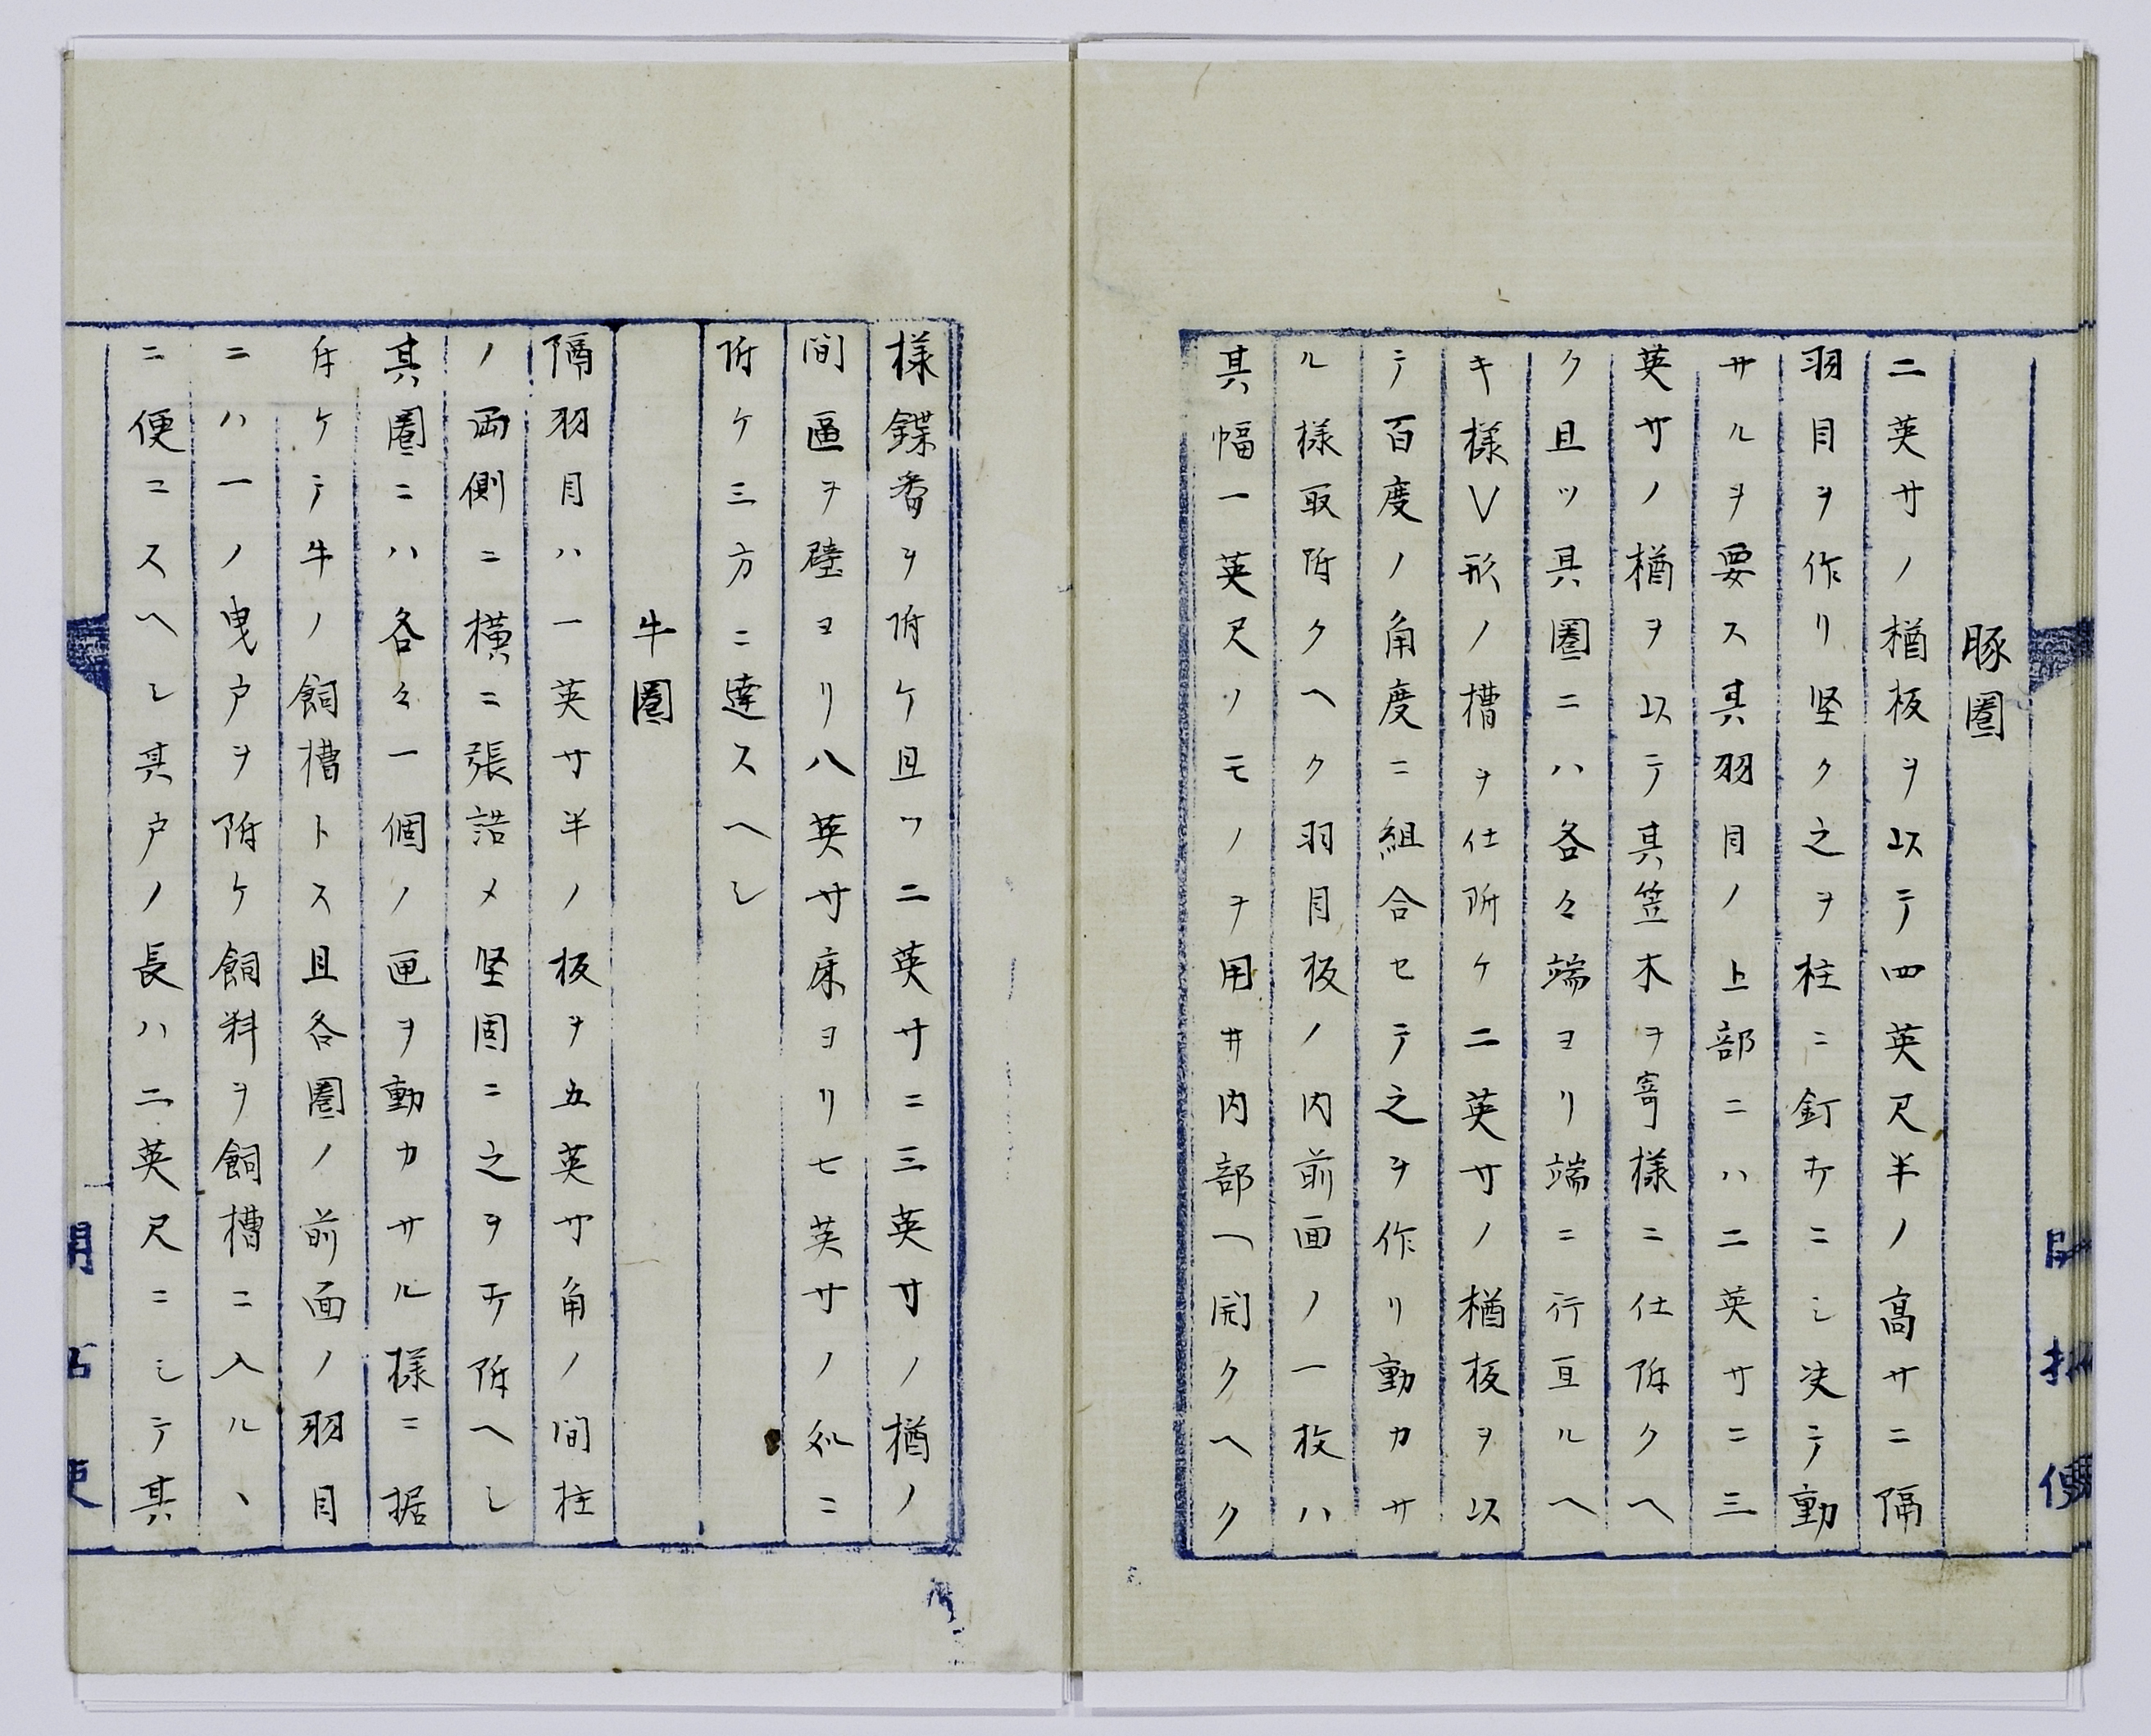 豚圏
二英サノ楢板ヲ以テ四英尺半ノ高サニ隔
羽目ヲ作リ堅ク之ヲ柱ニ釘打ニシ决テ動
サルヲ要ス其羽目ノ上部ニハ二英サニ三
英サノ楢ヲ以テ其笠木ヲ寄様ニ仕附クヘ
ク且ツ其圏ニハ各々端ヨリ端ニ行亘ルヘ
キ様V形ノ槽ヲ仕附ケ二英サノ楢板ヲ以
テ百度ノ角度ニ組合セテ之ヲ作リ動カサ
ル様取附クヘク羽目板ノ内前面ノ一枚ハ
其幅一英尺ノモノヲ用井内部ヘ開クヘク
様鏶番ヲ附ケ且ツ二英サニ三英サノ楢ノ
間逼ヲ壁ヨリ八英サ床ヨリ七英サノ処ニ
附ケ三方ニ達スヘシ
牛圏
隔羽目ハ一英サ半ノ板ヲ五英サ角ノ間柱
ノ両側ニ横ニ張詰メ堅固ニ之ヲ打附ヘシ
其圏ニハ各々一個ノ匣ヲ動カサル様ニ据
附ケテ牛ノ飼槽トス且各圏ノ前面ノ羽目
ニハ一ノ曳戸ヲ附ケ飼料ヲ飼槽ニ入ルヽ
ニ便ニスヘシ其戸ノ長ハ二英尺ニシテ其